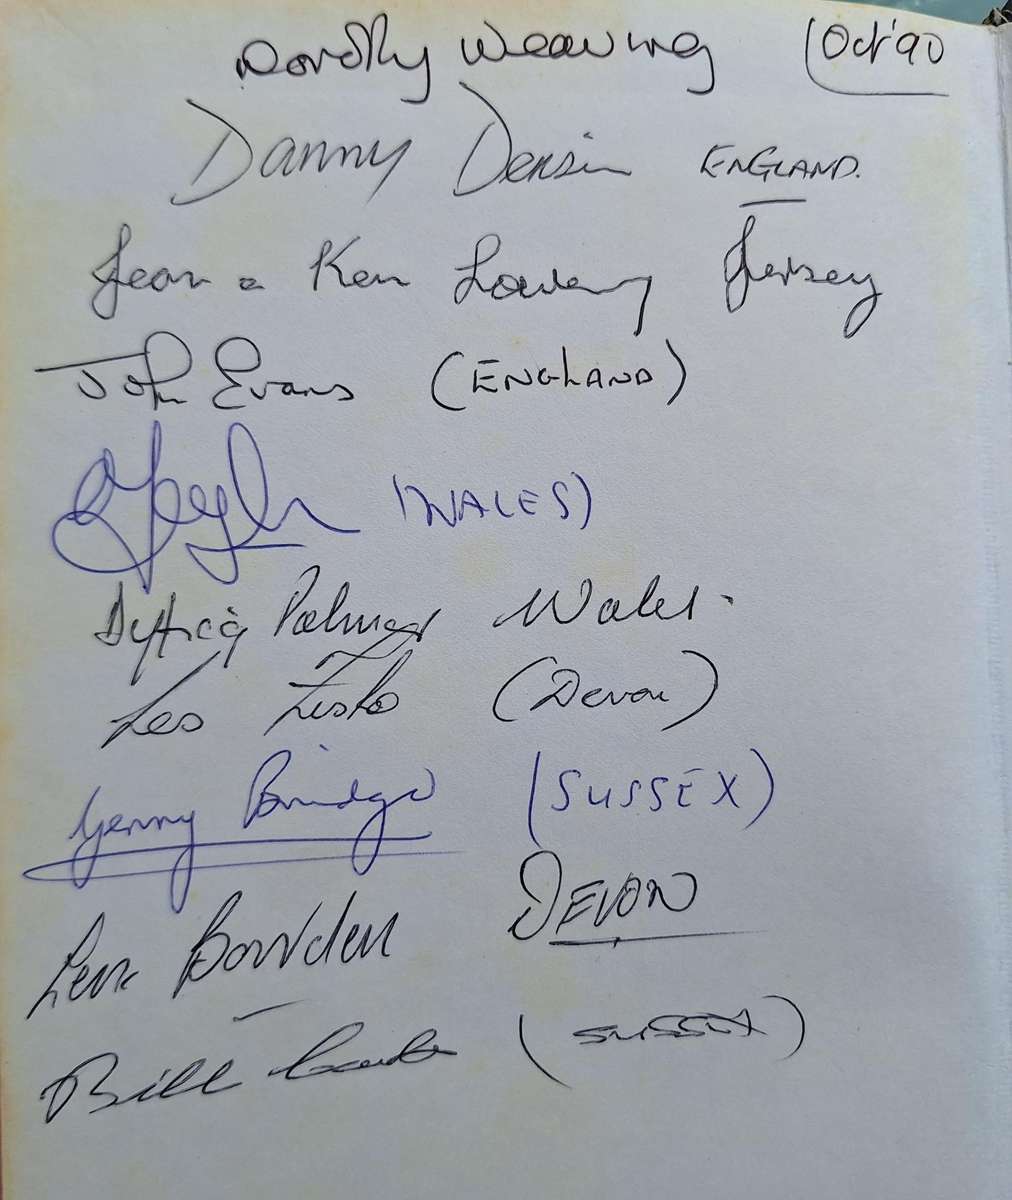 Dorothy Weaving (Oct '90
Danny Densin ENGLAND.
Jean & Ken Lowbury Jersey
John Evans (ENGLAND)
(WALES)
Palmer Wales.
Les (Devon)
Jenny Bridge (SUSSEX)
Len Bowden DEVON
Bill (SUSSEX)